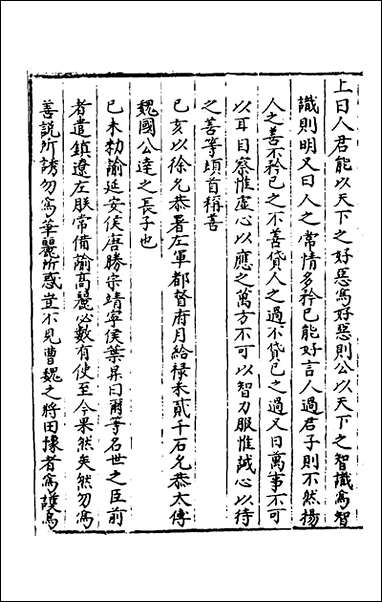 上曰人君能以天下之好惡爲好惡則公以天下之智識爲智
識則明又曰人之常情多矜已能好言人過君子則不然揚
人之善不矜已之不善貸人之過不貸已之過又曰萬事不可
以耳目察惟虛心以應之萬方不可以智力服惟誠心以待
之善等頓首稱善
已亥以徐允恭署左軍都督府月給禄米貳千石允恭太傅
魏國公達之長子也
已未勑諭延安侯唐勝宗靖寧侯葉昇曰爾等名世之臣前
者遣鎮遼左朕常備諭高麗必數有使至今果然矣然勿爲
善說所誘勿爲華麗所惑豈不見曹魏之將田豫者爲護烏